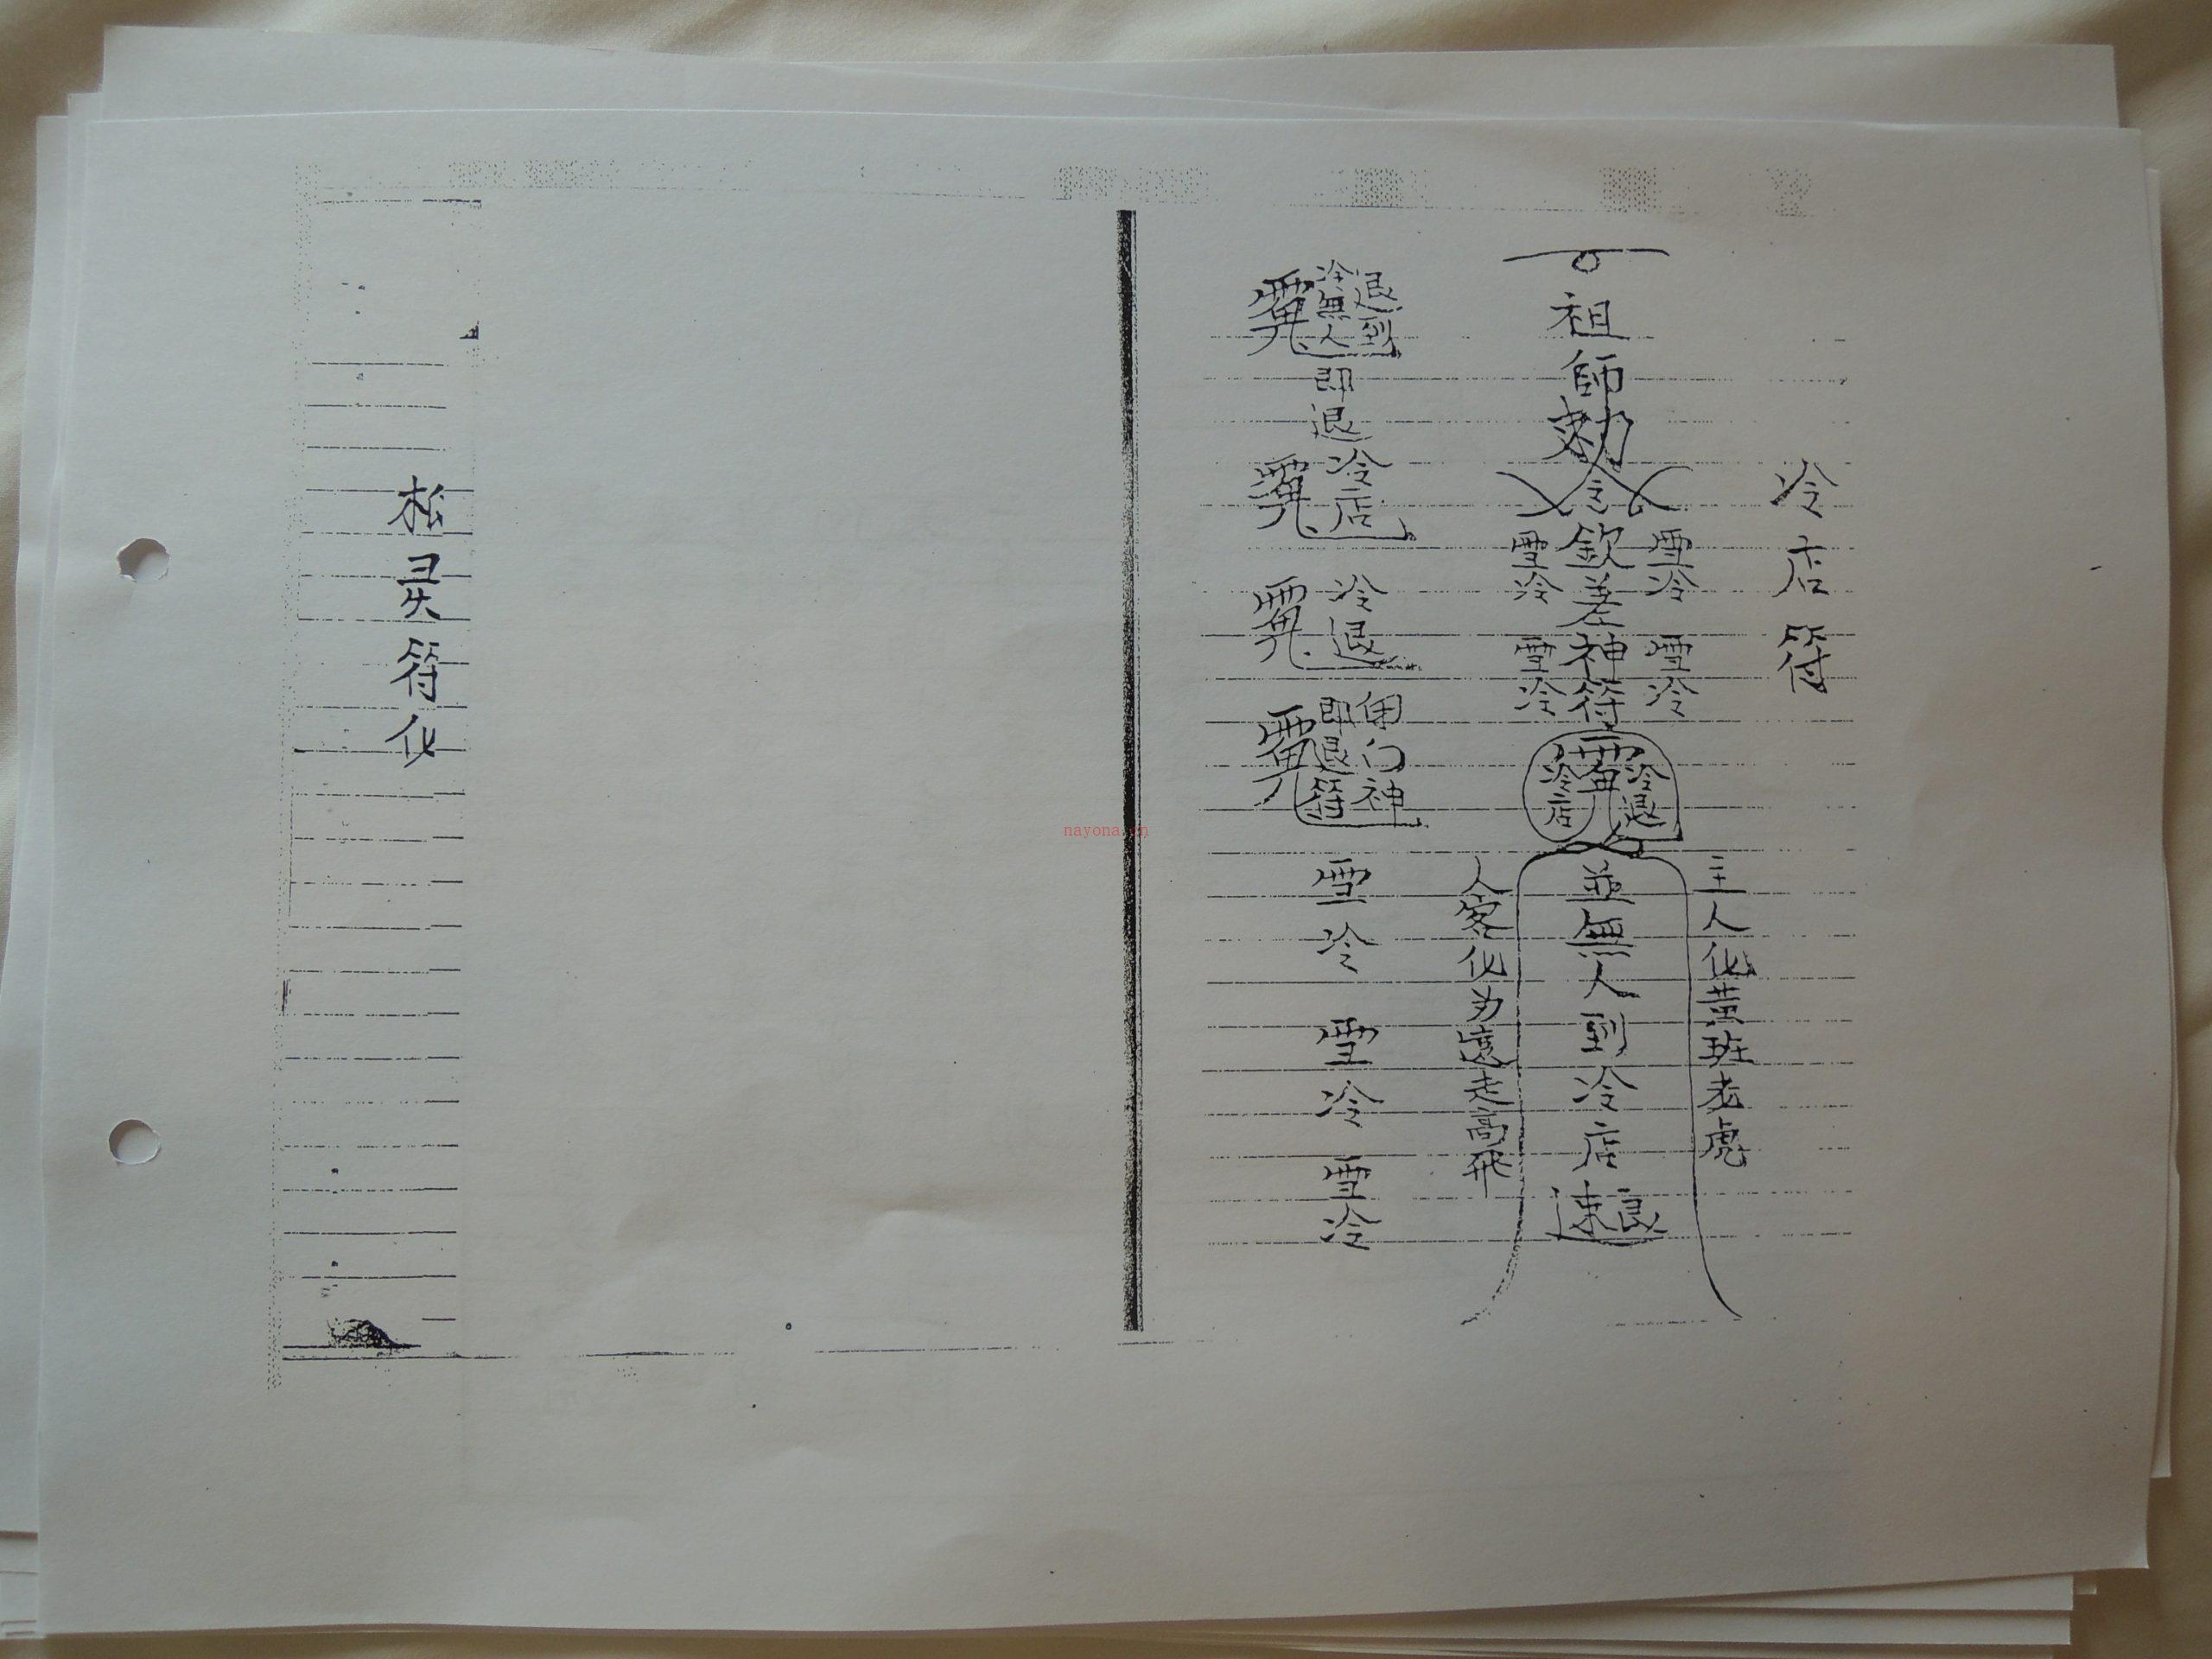 冷店符
主人化黃班老虎
祖師勅令欽差神符
雪冷 雪冷
雪冷 雪冷
冷退
冷店
並無人到冷店速退
人客化为遠走高飛
退到冷無人
即退冷店
冷退
門神
即退符
雪冷 雪冷 雪冷
nayona.cn
松灵符化